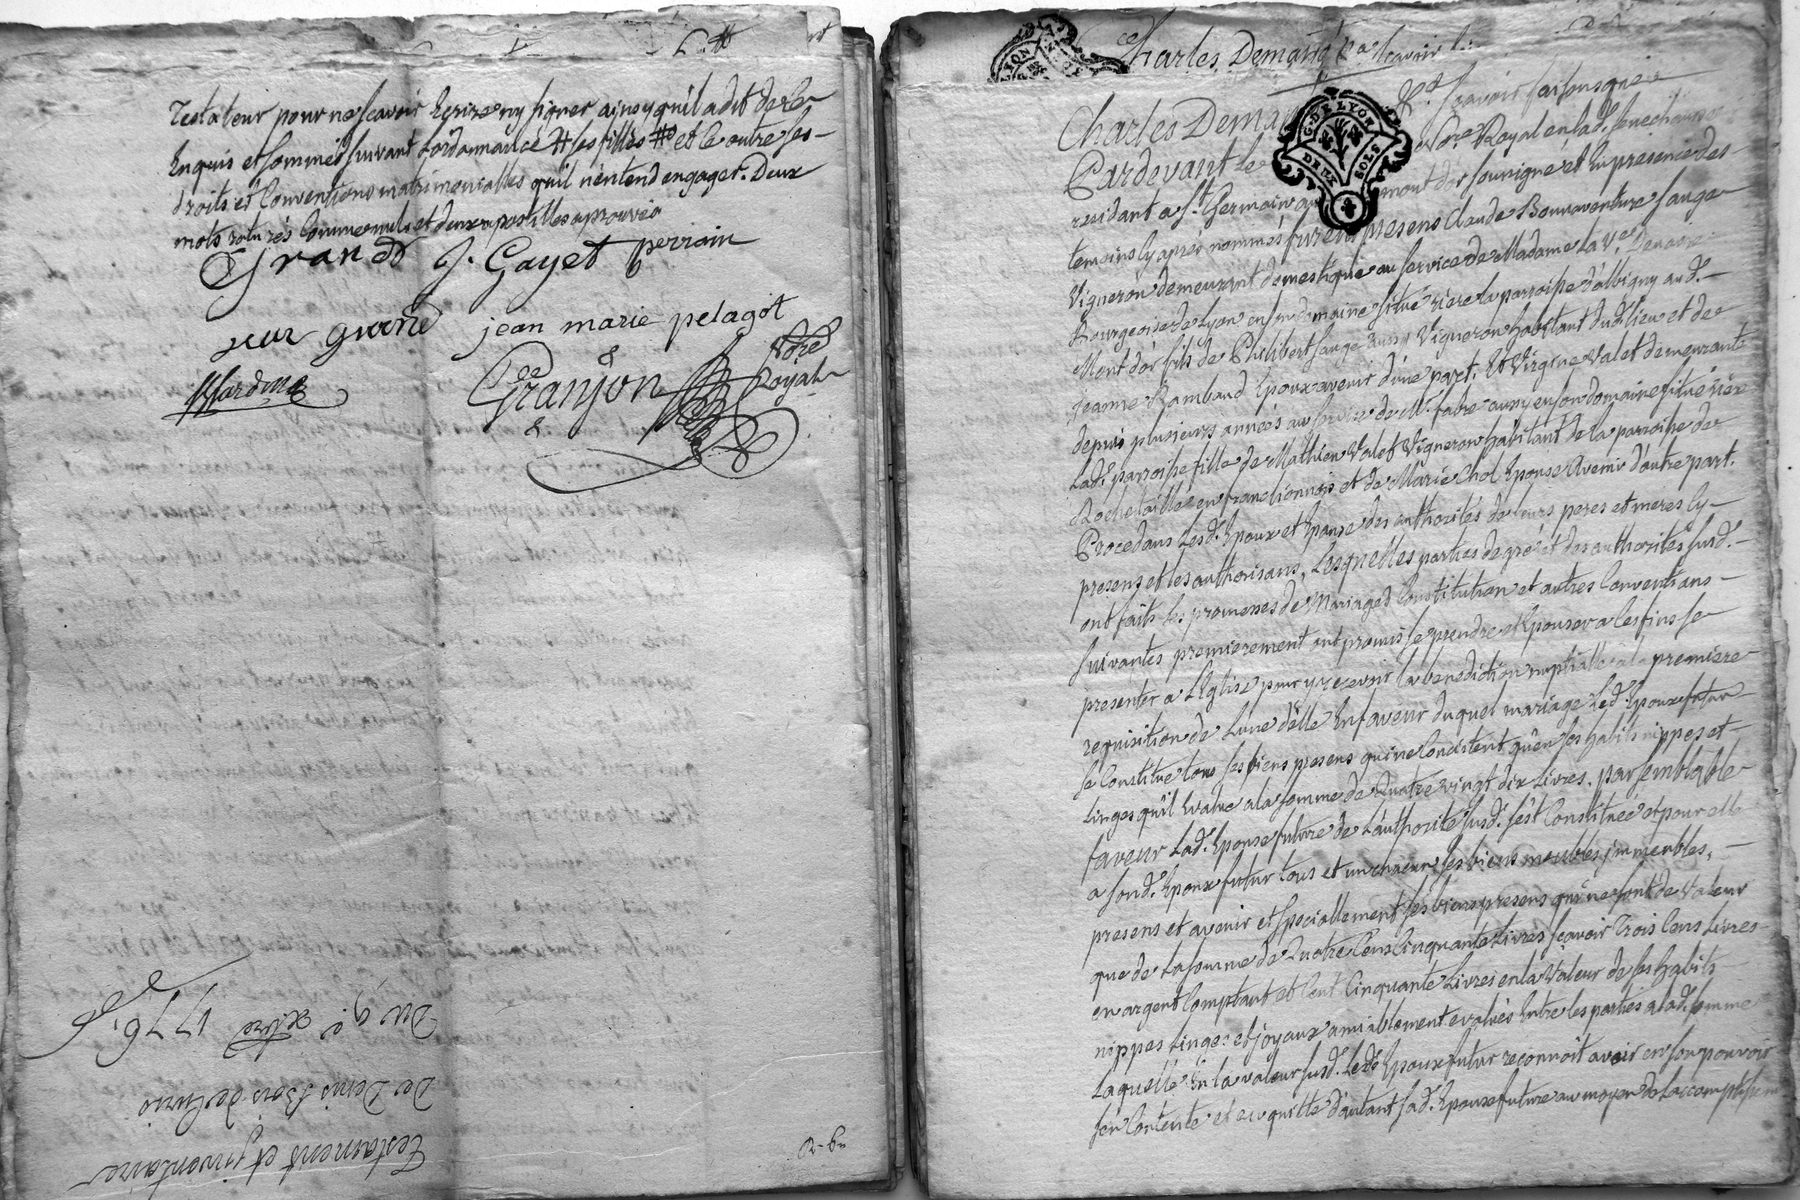 Testateur pour ne scavoir Ecrire ny signer ainsy quil a dit de ce
Enquis et sommé suivant Lordonnance # ses filles # et le outre ses
droits et Conventions matrimonialles quil n'entend engager. Deux
mots raturés Comme nuls et deux apostilles aprouvés
Grand J. Gayet perrain
jean marie pelagot
Granjon No.re Royal
Testament et inventaire
De Denis Bois de Curis
Du 9e xbre 1776.
Charles Demand
scavoir faisons que
Charles Demand
Pardevant le No.re Royal en lad. senechaussé
residant a St. Germain au mont dor soussigné et En presence des
temoins cy aprés nommés furent presens Claude Bonnaventure sauge
Vigneron demeurant domestique au service de Madame La Ve.
Bourgeoise de Lyon en son domaine situé riere la parroisse d'albigny aud.
Mont dor fils de Philibert sauge aussy Vigneron habitant dud. lieu et de
Jeanne Rambaud Epoux avenir d'une part. Et Virgine Valet demeurante
depuis plusieurs années au service de Mr. fabre aussy en son domaine situé riere
Lad. parroisse fille de Mathieu Valet Vigneron habitant de la parroisse de
Rochetaillée en franclionnois et de Marie Chol Epouse Avenir d'autre part.
Procedans Lesd. Epoux et Epouse des authorités de leurs peres et meres Cy
presens et les authorisans, Lesquelles parties de gré et des authorités susd.
ont faits les promesses de Mariages Constitution et autres Conventions
suivantes premierement ont promis se prendre et Epouser a Ces fins se
presenter a L'Eglise pour y recevoir la benediction nuptialle a la premiere
requisition de Lune d'elle En faveur duquel mariage Led. Epoux futur
se Constitue tous ses biens presens qui ne Consistent qu'en ses habits nippes et
Linges qu'il Evalue a la somme de Quatre vingt dix Livres. par semblable
faveur Lad. Epouse future de L'authorité susd. s'est Constituée et pour elle
a sond. Epoux futur tous et un chacun ses biens meubles immeubles,
presens et avenir et speciallement ses biens presens qui ne sont de Valeur
que de La somme de Quatre Cens Cinquante Livres scavoir Trois Cens Livres
en argent Comptant et Cent Cinquante Livres en la Valeur de ses habits
nippes Linges et joyaux amiablement evalués Entre les parties a lad. somme
Laquelle En la valeur susd. Led. Epoux futur reconnoit avoir en son pouvoir
s'en Contente et en quitte d'autant sad. Epouse future au moyen de Laccomplissem